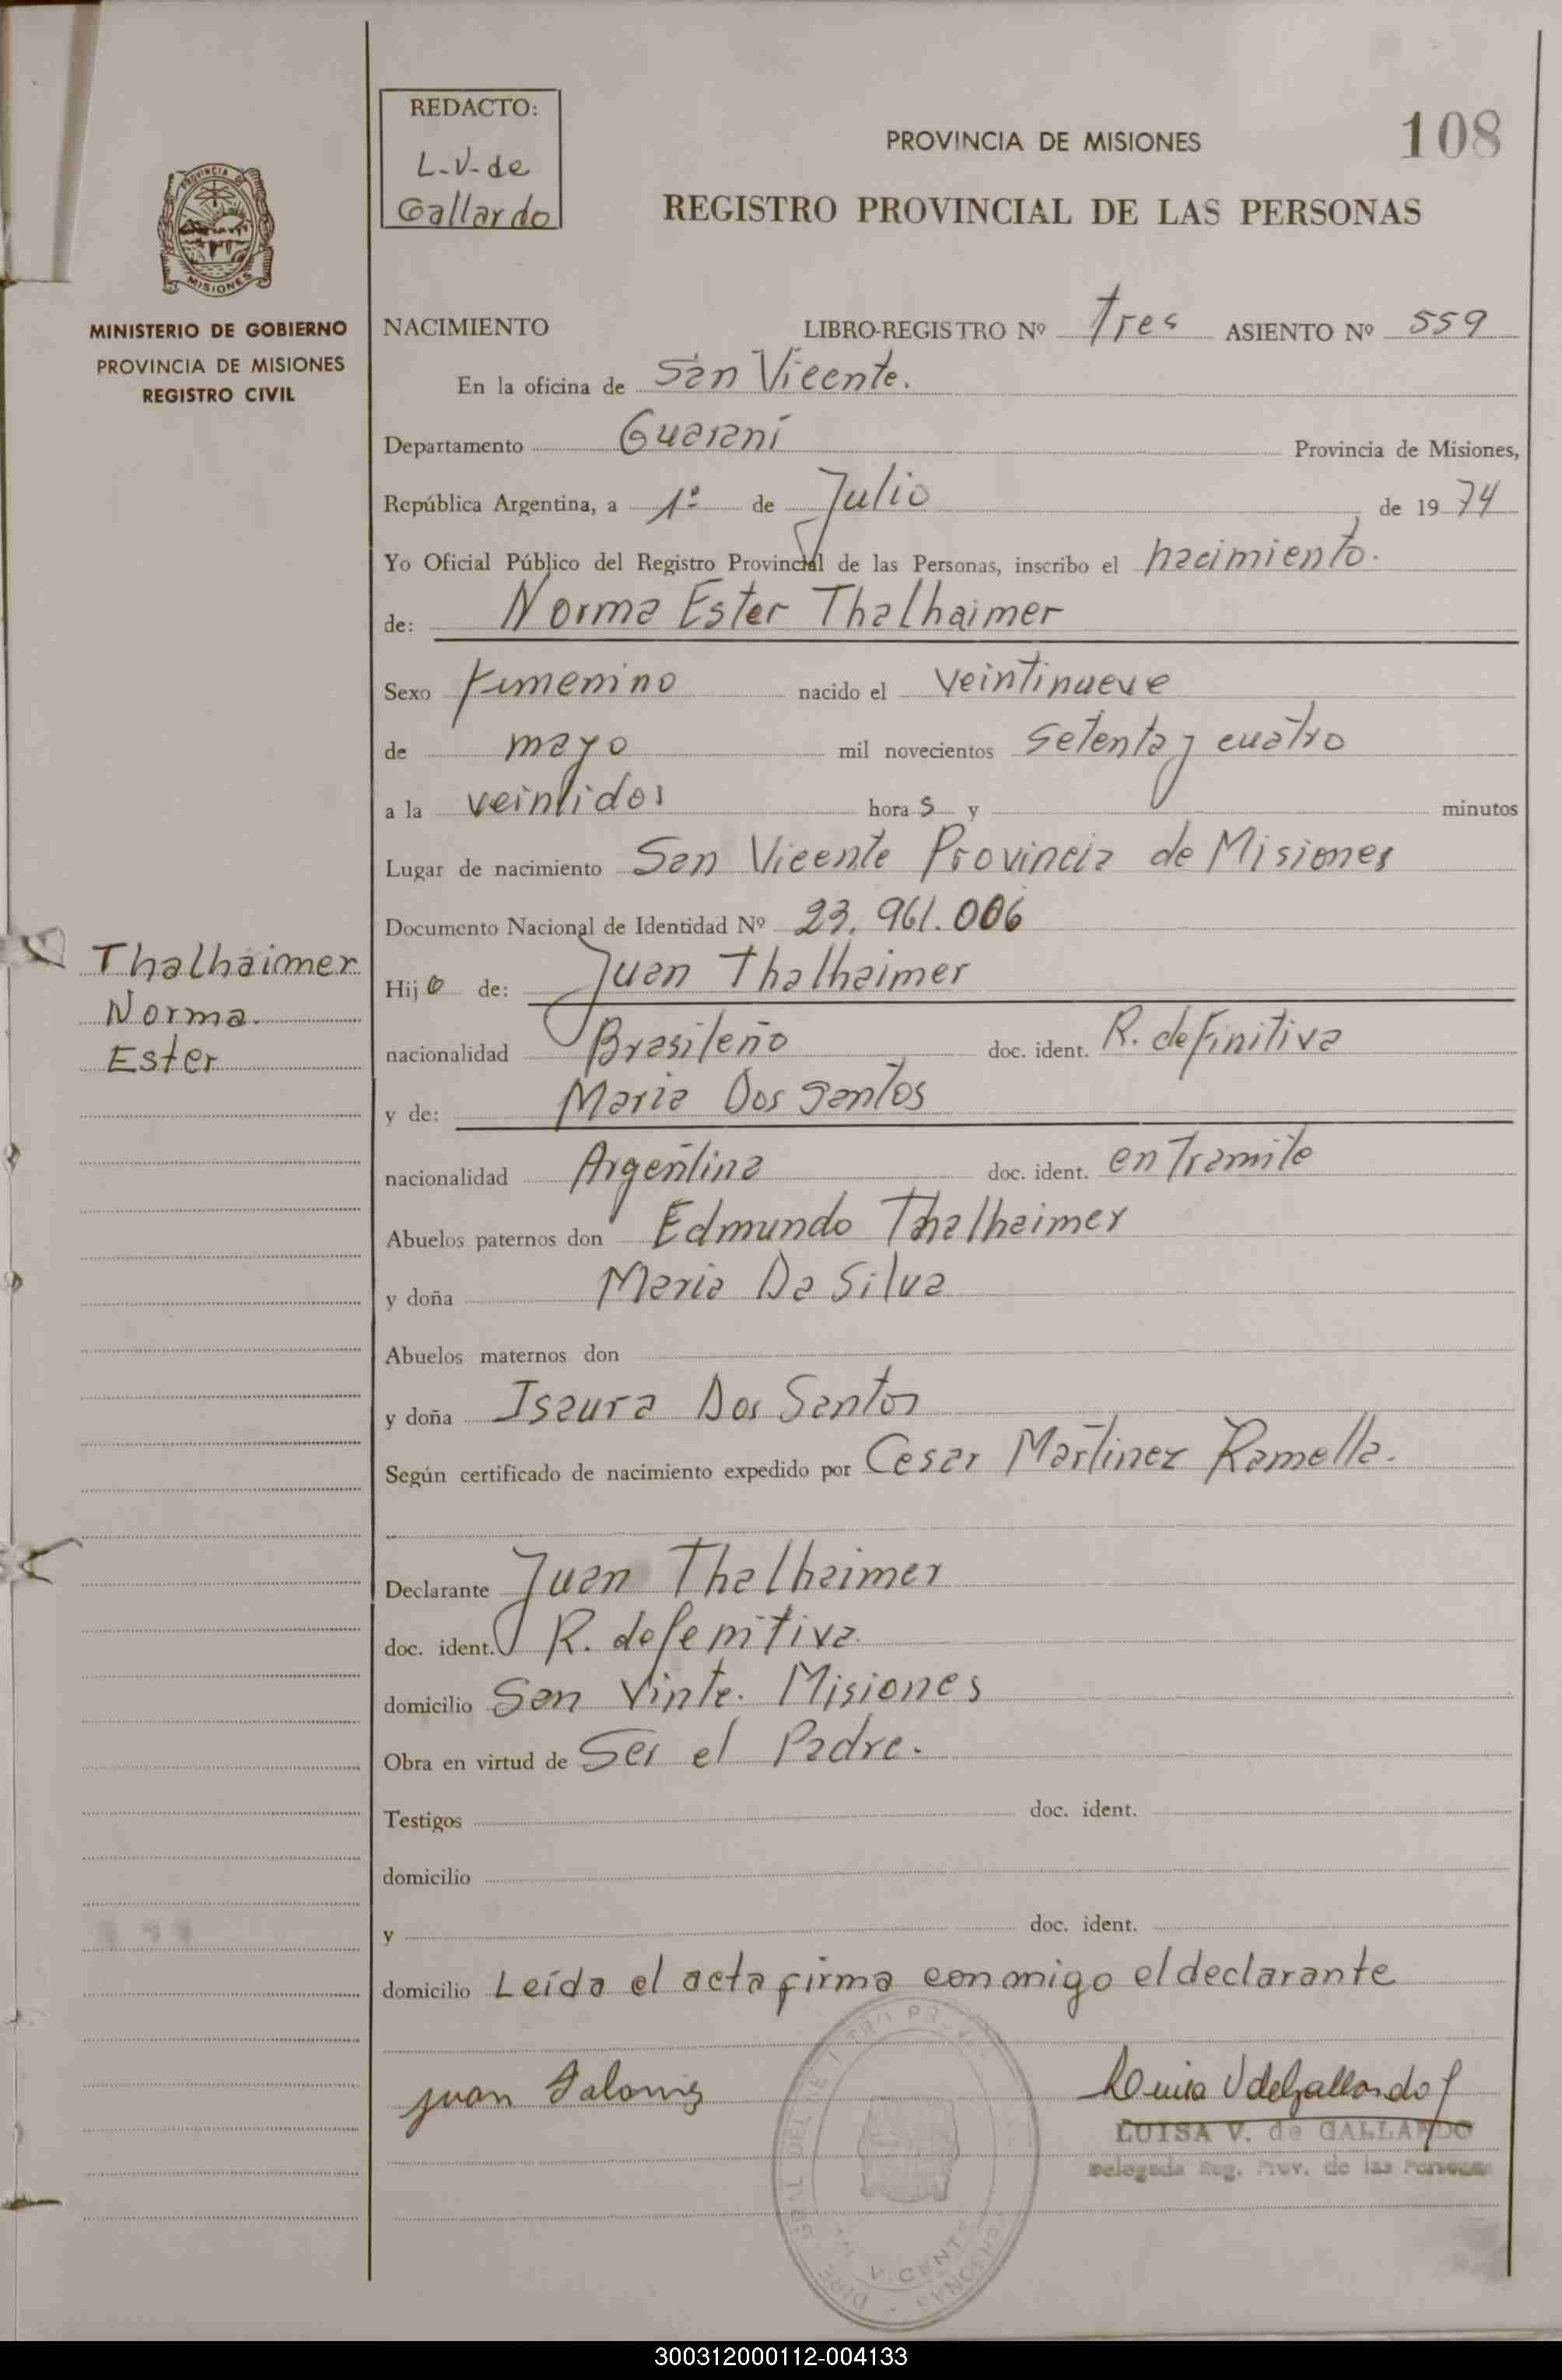 REDACTO:
L-V-de
Gallardo
PROVINCIA DE MISIONES
108
REGISTRO PROVINCIAL DE LAS PERSONAS
PROVINCIA DE
MISIONES
MINISTERIO DE GOBIERNO
PROVINCIA DE MISIONES
REGISTRO CIVIL
NACIMIENTO LIBRO-REGISTRO Nº Tres ASIENTO Nº 559
En la oficina de San Vicente.
Departamento Guaraní Provincia de Misiones,
República Argentina, a 1º de Julio de 1974
Yo Oficial Público del Registro Provincial de las Personas, inscribo el nacimiento.
de: Norma Ester Thalhaimer
Sexo femenino nacido el veintinueve
de mayo mil novecientos setenta y cuatro
a la veintidos horas y minutos
Lugar de nacimiento San Vicente Provincia de Misiones
Documento Nacional de Identidad Nº 23.961.006
Thalhaimer
Norma.
Ester
Hija de: Juan Thalhaimer
nacionalidad Brasileño doc. ident. R. definitiva
y de: Maria Dos Santos
nacionalidad Argentina doc. ident. en Tramite
Abuelos paternos don Edmundo Thalhaimer
y doña Maria Da Silva
Abuelos maternos don
y doña Isaura Dos Santos
Según certificado de nacimiento expedido por Cesar Martinez Ramella.
Declarante Juan Thalhaimer
doc. ident. R. defenitiva.
domicilio San Vinte. Misiones
Obra en virtud de Ser el Padre.
Testigos doc. ident.
domicilio
y doc. ident.
domicilio Leída el acta firma conmigo el declarante
juan
Luisa V de Gallardo
LUISA V. de GALLARDO
Delegada Reg. Prov. de las Personas
300312000112-004133